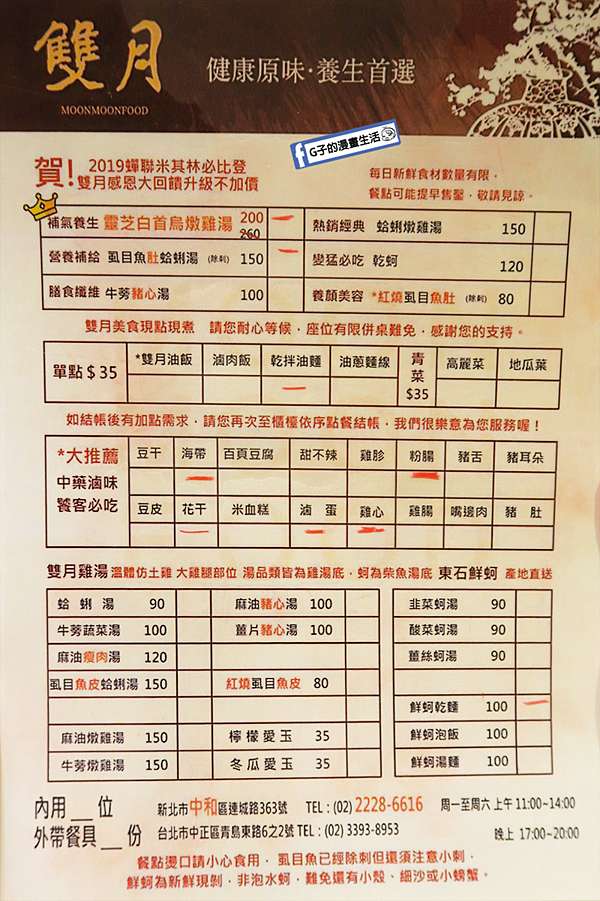 雙月
健康原味‧養生首選
MOONMOONFOOD
f G子的漫畫生活
賀!
2019蟬聯米其林必比登
雙月感恩大回饋升級不加價
每日新鮮食材數量有限，
餐點可能提早售罄，敬請見諒。
補氣養生 靈芝白首烏燉雞湯 200 260
熱銷經典 蛤蜊燉雞湯 150
營養補給 虱目魚肚蛤蜊湯 (除刺) 150
變猛必吃 乾蚵 120
膳食纖維 牛蒡豬心湯 100
養顏美容 *紅燒虱目魚肚 (除刺) 80
雙月美食現點現煮 請您耐心等候，座位有限併桌難免，感謝您的支持。
單點$35 *雙月油飯 滷肉飯 乾拌油麵 油蔥麵線 青菜$35 高麗菜 地瓜葉
如結帳後有加點需求，請您再次至櫃檯依序點餐結帳，我們很樂意為您服務喔！
*大推薦 中藥滷味 饕客必吃
豆干 海帶 百頁豆腐 甜不辣 雞胗 粉腸 豬舌 豬耳朵
豆皮 花干 米血糕 滷蛋 雞心 雞腸 嘴邊肉 豬肚
雙月雞湯 溫體仿土雞 大雞腿部位 湯品類皆為雞湯底，蚵為柴魚湯底 東石鮮蚵 產地直送
蛤蜊湯 90 麻油豬心湯 100 韭菜蚵湯 90
牛蒡蔬菜湯 100 薑片豬心湯 100 酸菜蚵湯 90
麻油瘦肉湯 120 薑絲蚵湯 90
虱目魚皮蛤蜊湯 150 紅燒虱目魚皮 80
鮮蚵乾麵 100
麻油燉雞湯 150 檸檬愛玉 35 鮮蚵泡飯 100
牛蒡燉雞湯 150 冬瓜愛玉 35 鮮蚵湯麵 100
內用__位 新北市中和區連城路363號 TEL：(02) 2228-6616 周一至周六 上午 11:00~14:00
外帶餐具__份 台北市中正區青島東路6之2號 TEL：(02) 3393-8953 晚上 17:00~20:00
餐點燙口請小心食用， 虱目魚已經除刺但還須注意小刺，
鮮蚵為新鮮現剝，非泡水蚵，難免還有小殼、細沙或小螃蟹。